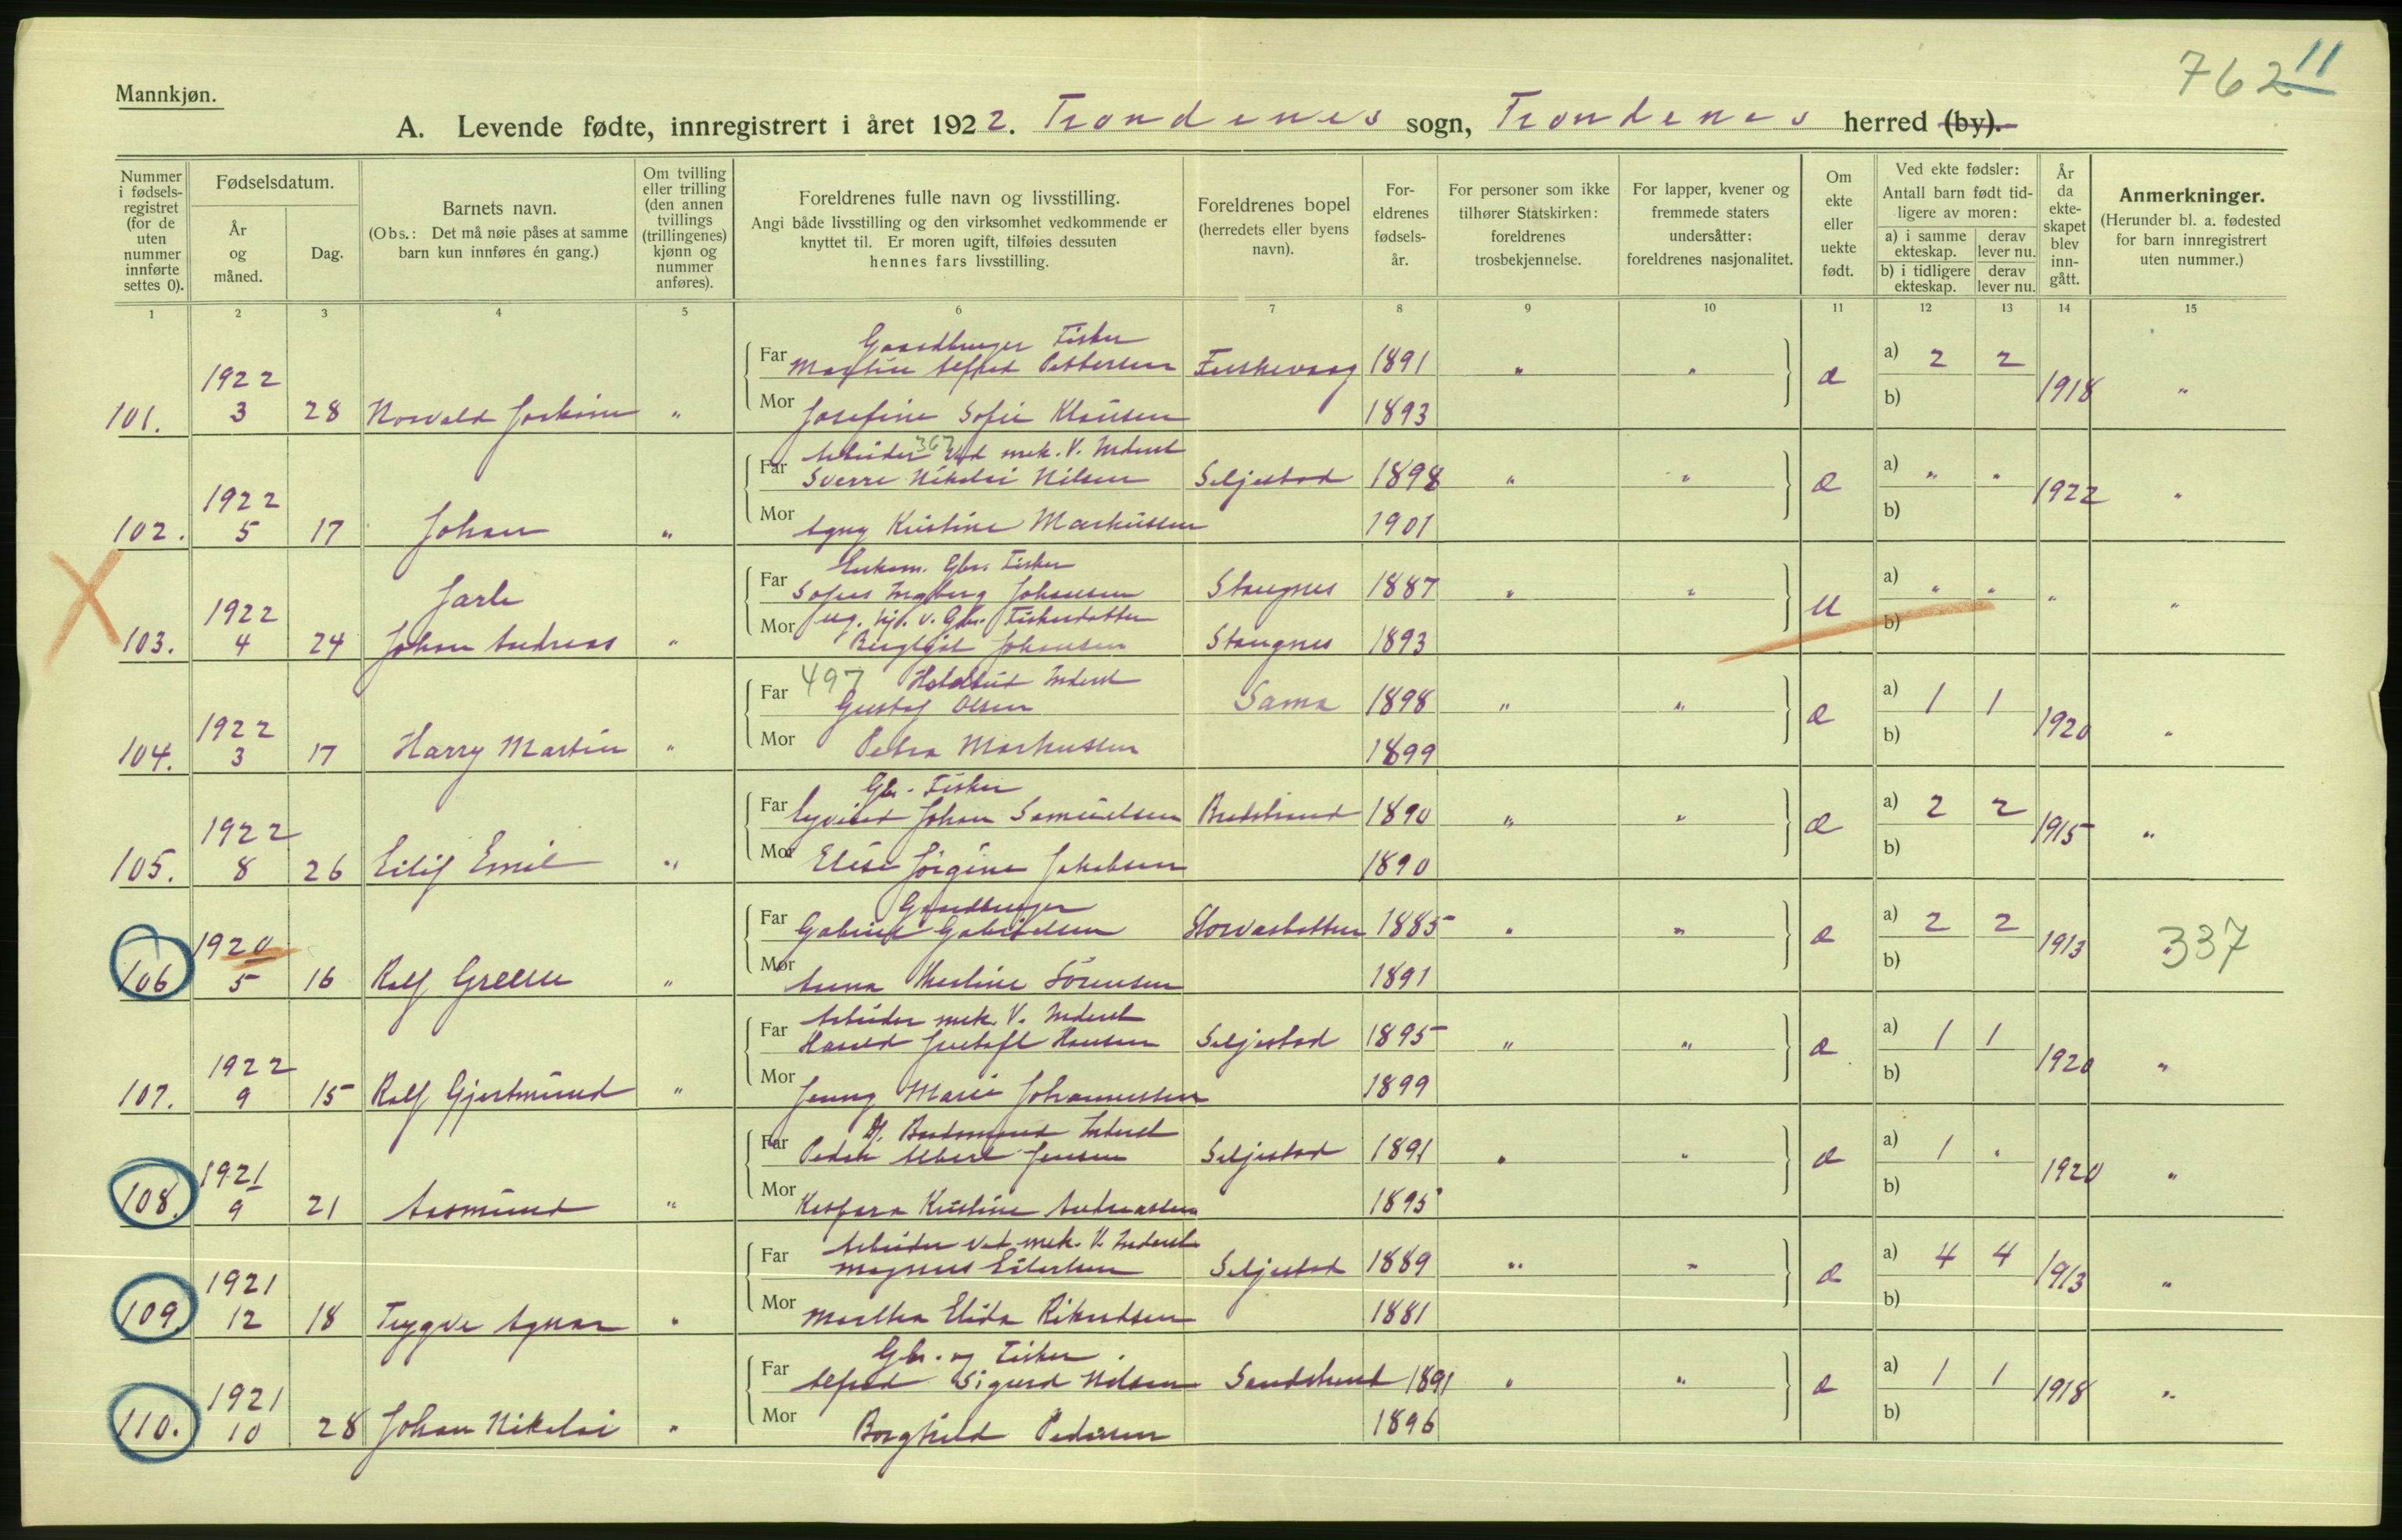 762 11
Mannkjøn.
A. Levende fødte, innregistrert i året 1922. Trondenes sogn, Trondenes herred (by).
Nummer i fødsels-registret (for de uten nummer innførte settes 0).
Fødselsdatum.
År og måned.
Dag.
Barnets navn.
(Obs.: Det må nøie påses at samme barn kun innføres én gang.)
Om tvilling eller trilling (den annen tvillings (trillingenes) kjønn og nummer anføres).
Foreldrenes fulle navn og livsstilling.
Angi både livsstilling og den virksomhet vedkommende er knyttet til. Er moren ugift, tilføies dessuten hennes fars livsstilling.
Foreldrenes bopel (herredets eller byens navn).
For-eldrenes fødsels-år.
For personer som ikke tilhører Statskirken: foreldrenes trosbekjennelse.
For lapper, kvener og fremmede staters undersåtter: foreldrenes nasjonalitet.
Om ekte eller uekte født.
Ved ekte fødsler:
Antall barn født tid-ligere av moren:
a) i samme ekteskap. derav lever nu.
b) i tidligere ekteskap. derav lever nu.
År da ekte-skapet blev inn-gått.
Anmerkninger.
(Herunder bl. a. fødested for barn innregistrert uten nummer.)
1 2 3 4 5 6 7 8 9 10 11 12 13 14 15
Gaardbruger Fisker
1922 Far Martin Alfred Pettersen 1891 " " æ a) 2 2 1918 "
101. 3 28 Norvald Joakim " Mor Josefine Sofie Klausen 1893 b)
Arbeider 367 ved mek. V. Inderst
1922 Far Sverre Nikolai Nilsen Seljestad 1898 " " æ a) " " 1922 "
102. 5 17 Johan " Mor Agny Kristine Markussen 1901 b)
Enkem. Gbr. Fisker
Jarle Far Sofus Ingberg Johansen Stangnes 1887 " " u a) " " " "
1922 Mor ug. hj. v. Gbr. Fiskerdatter
103. 4 24 Johan Andreas " Bergljot Johansen Stangnes 1893 b)
497 Inderst
1922 Far Gustav Olsen Sama 1898 " " æ a) 1 1 1920 "
104. 3 17 Harry Martin " Mor Petra Markussen 1899 b)
Gbr. Fisker
1922 Far Eyvind Johan Samuelsen 1890 " " æ a) 2 2 1915 "
105. 8 26 Eilif Emil " Mor Elise Jørgine Jakobsen 1890 b)
Gaardbruger
1920 Far Gabriel Gabrielsen Storvasbotten 1885 " " æ a) 2 2 1913 337
106 5 16 Rolf " Mor Anna Sörensen 1891 b)
Arbeider mek. V. Inderst
1922 Far Harald Hansen Seljestad 1895 " " æ a) 1 1 1920 "
107. 9 15 Rolf Gjertmund " Mor Jenny Marie Johannessen 1899 b)
Baadsmand Inderst
1921 Far Peder Albert Jensen Seljestad 1891 " " æ a) 1 " 1920 "
108. 9 21 Aasmund " Mor Kaspara Kristine Andreassen 1895 b)
Arbeider ved mek. V. Inderst
1921 Far Magnus Eilertsen Seljestad 1889 " " æ a) 4 4 1913 "
109. 12 18 Trygve Agnar " Mor Martha Elida Rikardsen 1881 b)
Gbr. og Fisker.
1921 Far Alfred Sigurd Nilsen Sandstrand 1891 " " æ a) 1 1 1918 "
110. 10 28 Johan Nikolai " Mor Borghild Pedersen 1896 b)